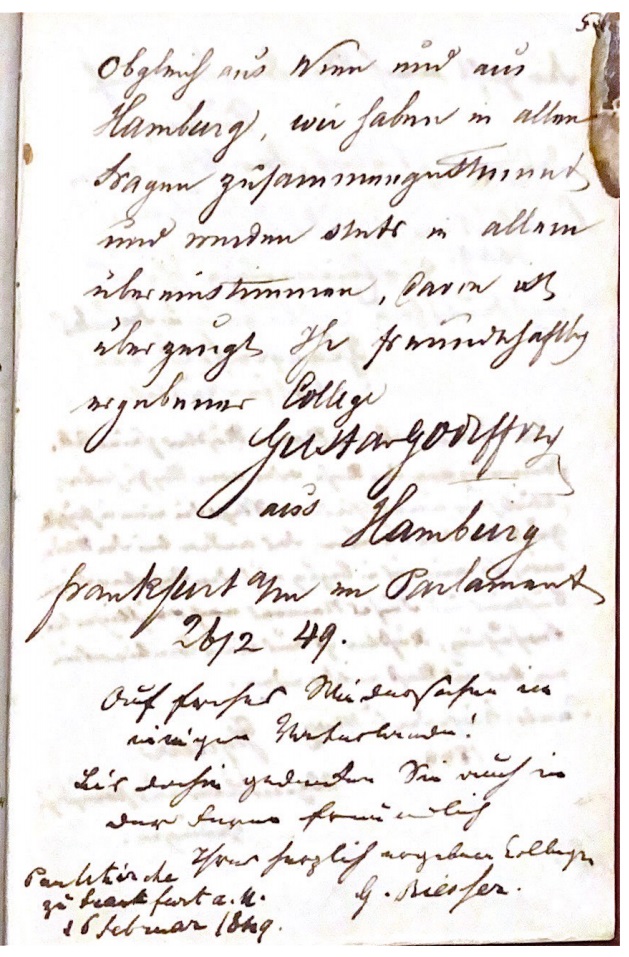 Obgleich aus Wien und aus
Hamburg, wir haben in allen
Fragen zusammengestimmt
und werden stets in allem
übereinstimmen, davon ist
überzeugt Ihr freundschaftlich
ergebener College
Gustav Godeffroy
aus Hamburg
Frankfurt a/m im Parlament
26/2 49.
Auf frohes Wiedersehen im
einigen Vaterlande!
Bis dahin gedenken Sie auch in
der Ferne freundlich
Ihres herzlich ergebenen Collegen
G. Riesser.
Paulskirche
zu Frankfurt a. M.
26 Februar 1849.